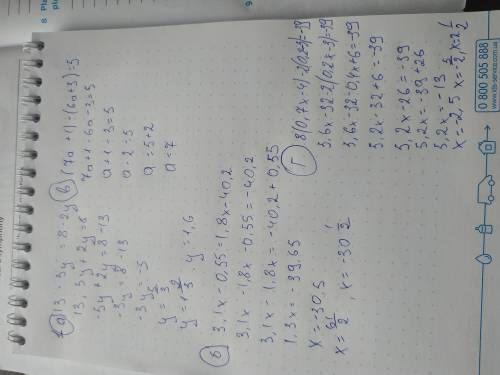 а) 13 - 5y = 8 - 2y
13, 5y + 2y = 8
-5y + 2y = 8 - 13
-3y = 8 - 13
-3y = -5
y = 5/3
y = 1 2/3 y = 1,6
б) 3,1x - 0,55 = 1,8x - 40,2
3,1x - 1,8x - 0,55 = -40,2
3,1x - 1,8x = -40,2 + 0,55
1,3x = -39,65
x = -30,5
x = 61/2, x = -30 1/2
в) (7a + 1) - (6a + 3) = 5
7a + 1 - 6a - 3 = 5
a + 1 - 3 = 5
a - 2 = 5
a = 5 + 2
a = 7
г) 8(0,7x - 4) - 2(0,2x - 3) = -39
5,6x - 32 - 2(0,2x - 3) = -39
5,6x - 32 - 0,4x + 6 = -39
5,2x - 32 + 6 = -39
5,2x - 26 = -39
5,2x = -39 + 26
5,2x = -13
x = -2,5 x = -5/2, x = 2 1/2
0 800 505 888
www.vts-service.com.ua
8
9